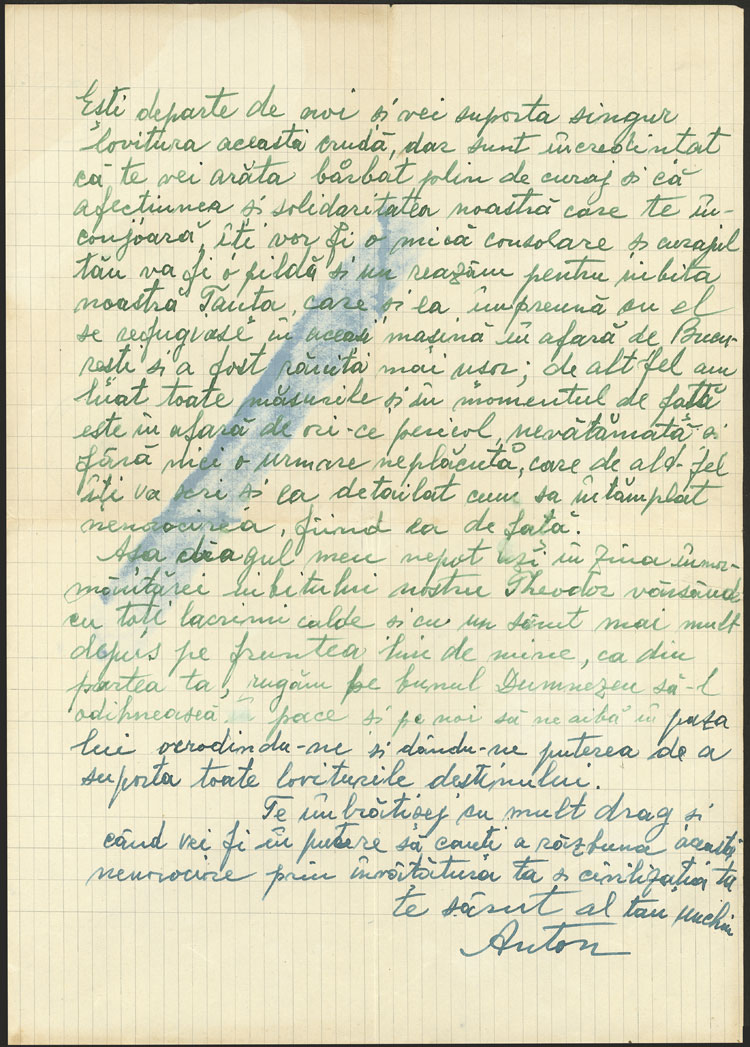 Ești departe de noi și vei suporta singur
lovitura aceasta crudă, dar sunt încredintat
că te vei arăta bărbat plin de curaj si că
afecțiunea si solidaritatea noastră care te în-
conjoară, îți vor fi o mică consolare si curajul
tău va fi o pildă si un reazăm pentru iubita
noastră Tanta, care si ea împreună cu el
se refugiase în aceasi masină în afară de Bucu-
resti si a fost rănită mai usor; de alt fel am
luat toate măsurile si în momentul de față
este în afară de ori-ce pericol, nevătămată si
fără nici o urmare neplăcută, care de alt-fel
îți va scri si ea detailat cum sa întâmplat
nenorocirea, fiind ea de față.
Asa dragul meu nepot azi în ziua înmor-
mântărei iubitului nostru Theodor vărsând
cu toți lacrimi calde si cu un sărut mai mult
depus pe fruntea lui de mine, ca din
partea ta, rugăm pe bunul Dumnezeu să-l
odihnească în pace si pe noi să ne aibă în paza
lui ocrodindu-ne si dându-ne puterea de a
suporta toate loviturile destinului.
Te îmbrătisej cu mult drag si
când vei fi în putere să cauti a răzbuna această
nenorocire prin învătătura ta si civilizatia ta
te sărut al tau unchiu
Anton